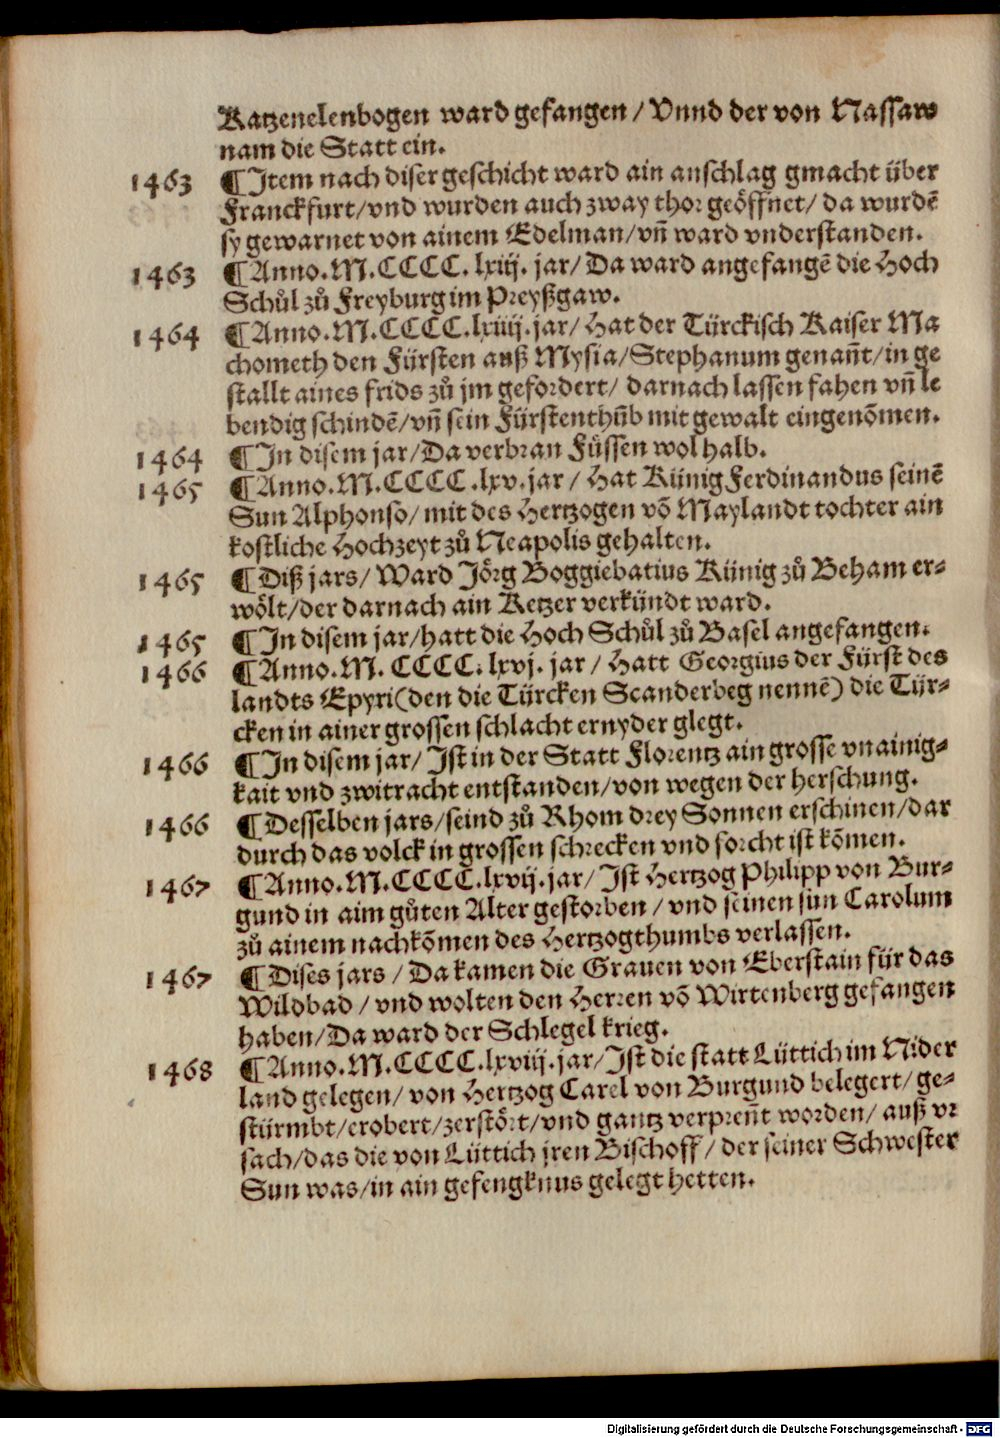 Katzenelenbogen ward gefangen / Vnnd der von Nassaw
nam die Statt ein.
1463 ¶ Item nach diser geschicht ward ain anschlag gmacht über
Franckfurt/vnd wurden auch zway thor geöffnet/ da wurdē
sy gewarnet von ainem Edelman/vñ ward vnderstanden.
1463 ¶ Anno.M.CCCC.lxiij. jar/ Da ward angefangē die Hoch
Schůl zů Freyburg im Preyßgaw.
1464 ¶ Anno.M.CCCC.lxiiij.jar/ Hat der Türckisch Kaiser Ma
chometh den Fürsten auß Mysia/Stephanum genañt/in ge
stallt aines frids zů jm gefordert/ darnach lassen fahen vñ le
bendig schindē/vñ sein Fürstenthūb mit gewalt eingenōmen.
1464 ¶ In disem jar/Da verbran Füssen wol halb.
1465 ¶ Anno.M.CCCC.lxv.jar / Hat Künig Ferdinandus seinē
Sun Alphonso/ mit des Hertzogen vō Maylandt tochter ain
kostliche Hochzeyt zů Neapolis gehalten.
1465 ¶ Diß jars/ Ward Jörg Boggiebatius Künig zů Beham er-
wölt/der darnach ain Ketzer verkündt ward.
1465 ¶ In disem jar/hatt die Hoch Schůl zů Basel angefangen.
1466 ¶ Anno.M.CCCC.lxvj. jar / Hatt Georgius der Fürst des
landts Epyri(den die Türcken Scanderbeg nennē) die Tür-
cken in ainer grossen schlacht ernyder glegt.
1466 ¶ In disem jar/ Ist in der Statt Florentz ain grosse vnainig-
kait vnd zwitracht entstanden/von wegen der herschung.
1466 ¶ Desselben jars/seind zů Rhom drey Sonnen erschinen/dar
durch das volck in grossen schrecken vnd forcht ist kōmen.
1467 ¶ Anno.M.CCCC.lxvij.jar/ Ist Hertzog Philipp von Bur-
gund in aim gůten Alter gestorben / vnd seinen sun Carolum
zů ainem nachkōmen des Hertzogthumbs verlassen.
1467 ¶ Dises jars / Da kamen die Grauen von Eberstain für das
Wildbad / vnd wolten den Herren vō Wirtenberg gefangen
haben/Da ward der Schlegel krieg.
1468 ¶ Anno.M.CCCC.lxviij.jar/Ist die statt Lüttich im Nider
land gelegen/ von Hertzog Carel von Burgund belegert/ ge-
stürmbt/erobert/zerstört/vnd gantz verpreñt worden/ auß vr
sach/das die von Lüttich jren Bischoff / der seiner Schwester
Sun was/in ain gefengknus gelegt hetten.
Digitalisierung gefördert durch die Deutsche Forschungsgemeinschaft - DFG